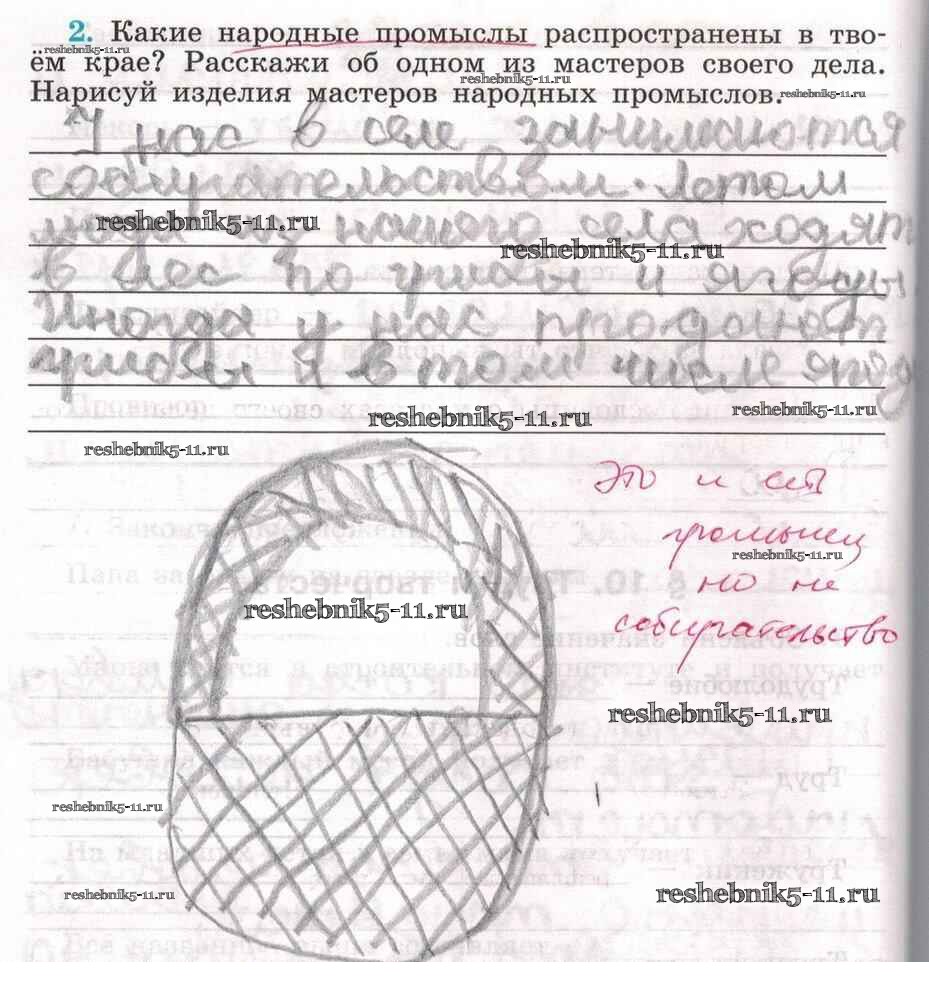 2. Какие народные промыслы распространены в тво-
reshebnik5-11.ru
ём крае? Расскажи об одном из мастеров своего дела.
reshebnik5-11.ru
Нарисуй изделия мастеров народных промыслов.
reshebnik5-11.ru
У нас в селе занимаются
собирательством. Летом
reshebnik5-11.ru
из нашего села ходят
reshebnik5-11.ru
в лес по грибы и ягоды
Иногда у нас продают
грибы и в том числе ягод
reshebnik5-11.ru
reshebnik5-11.ru
reshebnik5-11.ru
Это и есть
промысел
reshebnik5-11.ru
но не
reshebnik5-11.ru
собирательство
reshebnik5-11.ru
reshebnik5-11.ru
reshebnik5-11.ru
reshebnik5-11.ru
§ 10. Труд и творчество
Трудолюбие —
Труд —
Труженик —